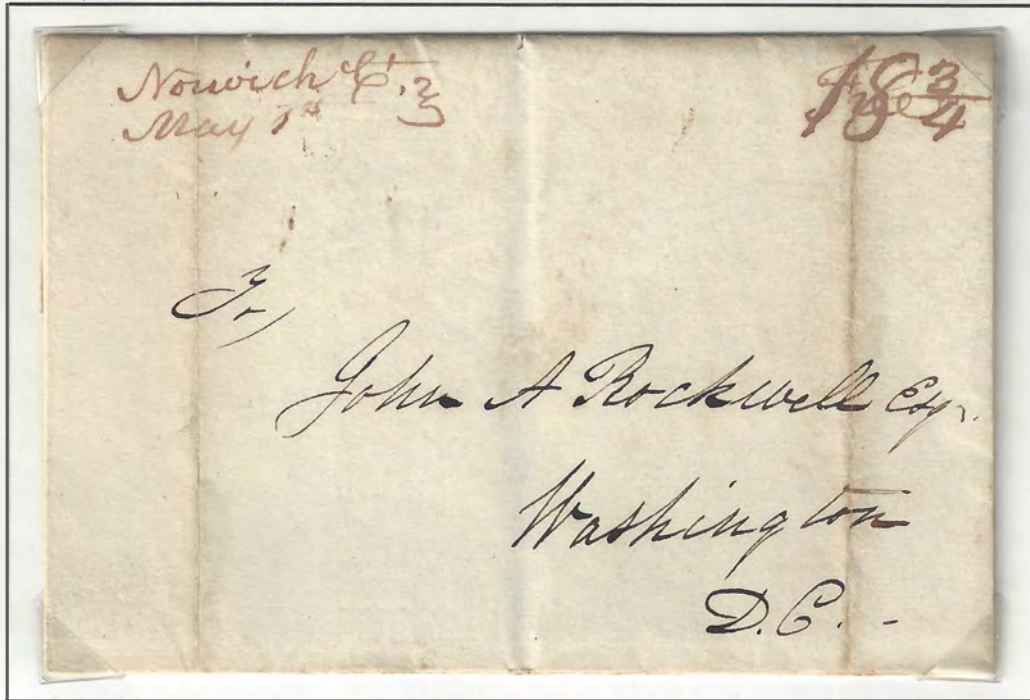 Norwich Ct.
May 1st
18 3/4
John A Rockwell Esqr.
Washington
D.C. -